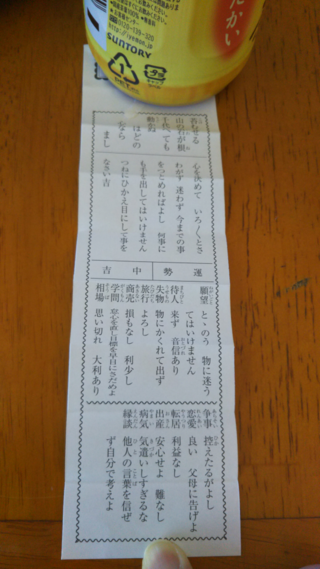 たかい
SUNTORY
PET
苔むせる
山の岩が根
千代ても
動かぬ
ほどの
おなら
まし
心を求めて いろ〱とさ
わがず 迷わず 今までの事
をつとめればよし 何事に
も手を出してはいけません
つねにひかえ目にして事を
なさい吉
運勢 中吉
願望 と、のう 物に迷う
てはいけません
待人 来ず 音信あり
失物 物にかくれて出ず
旅行 よろし
商売 損もなし 利少し
学問 安心を直し目標を早目にさだめよ
相場 思い切れ 大利あり
争事 控えたるがよし
恋愛 良い 父母に告げよ
転居 利益なし
出産 安心せよ 難なし
病気 気遣いしすぎるな
縁談 他人の言葉を信ぜ
ず自分で考えよ